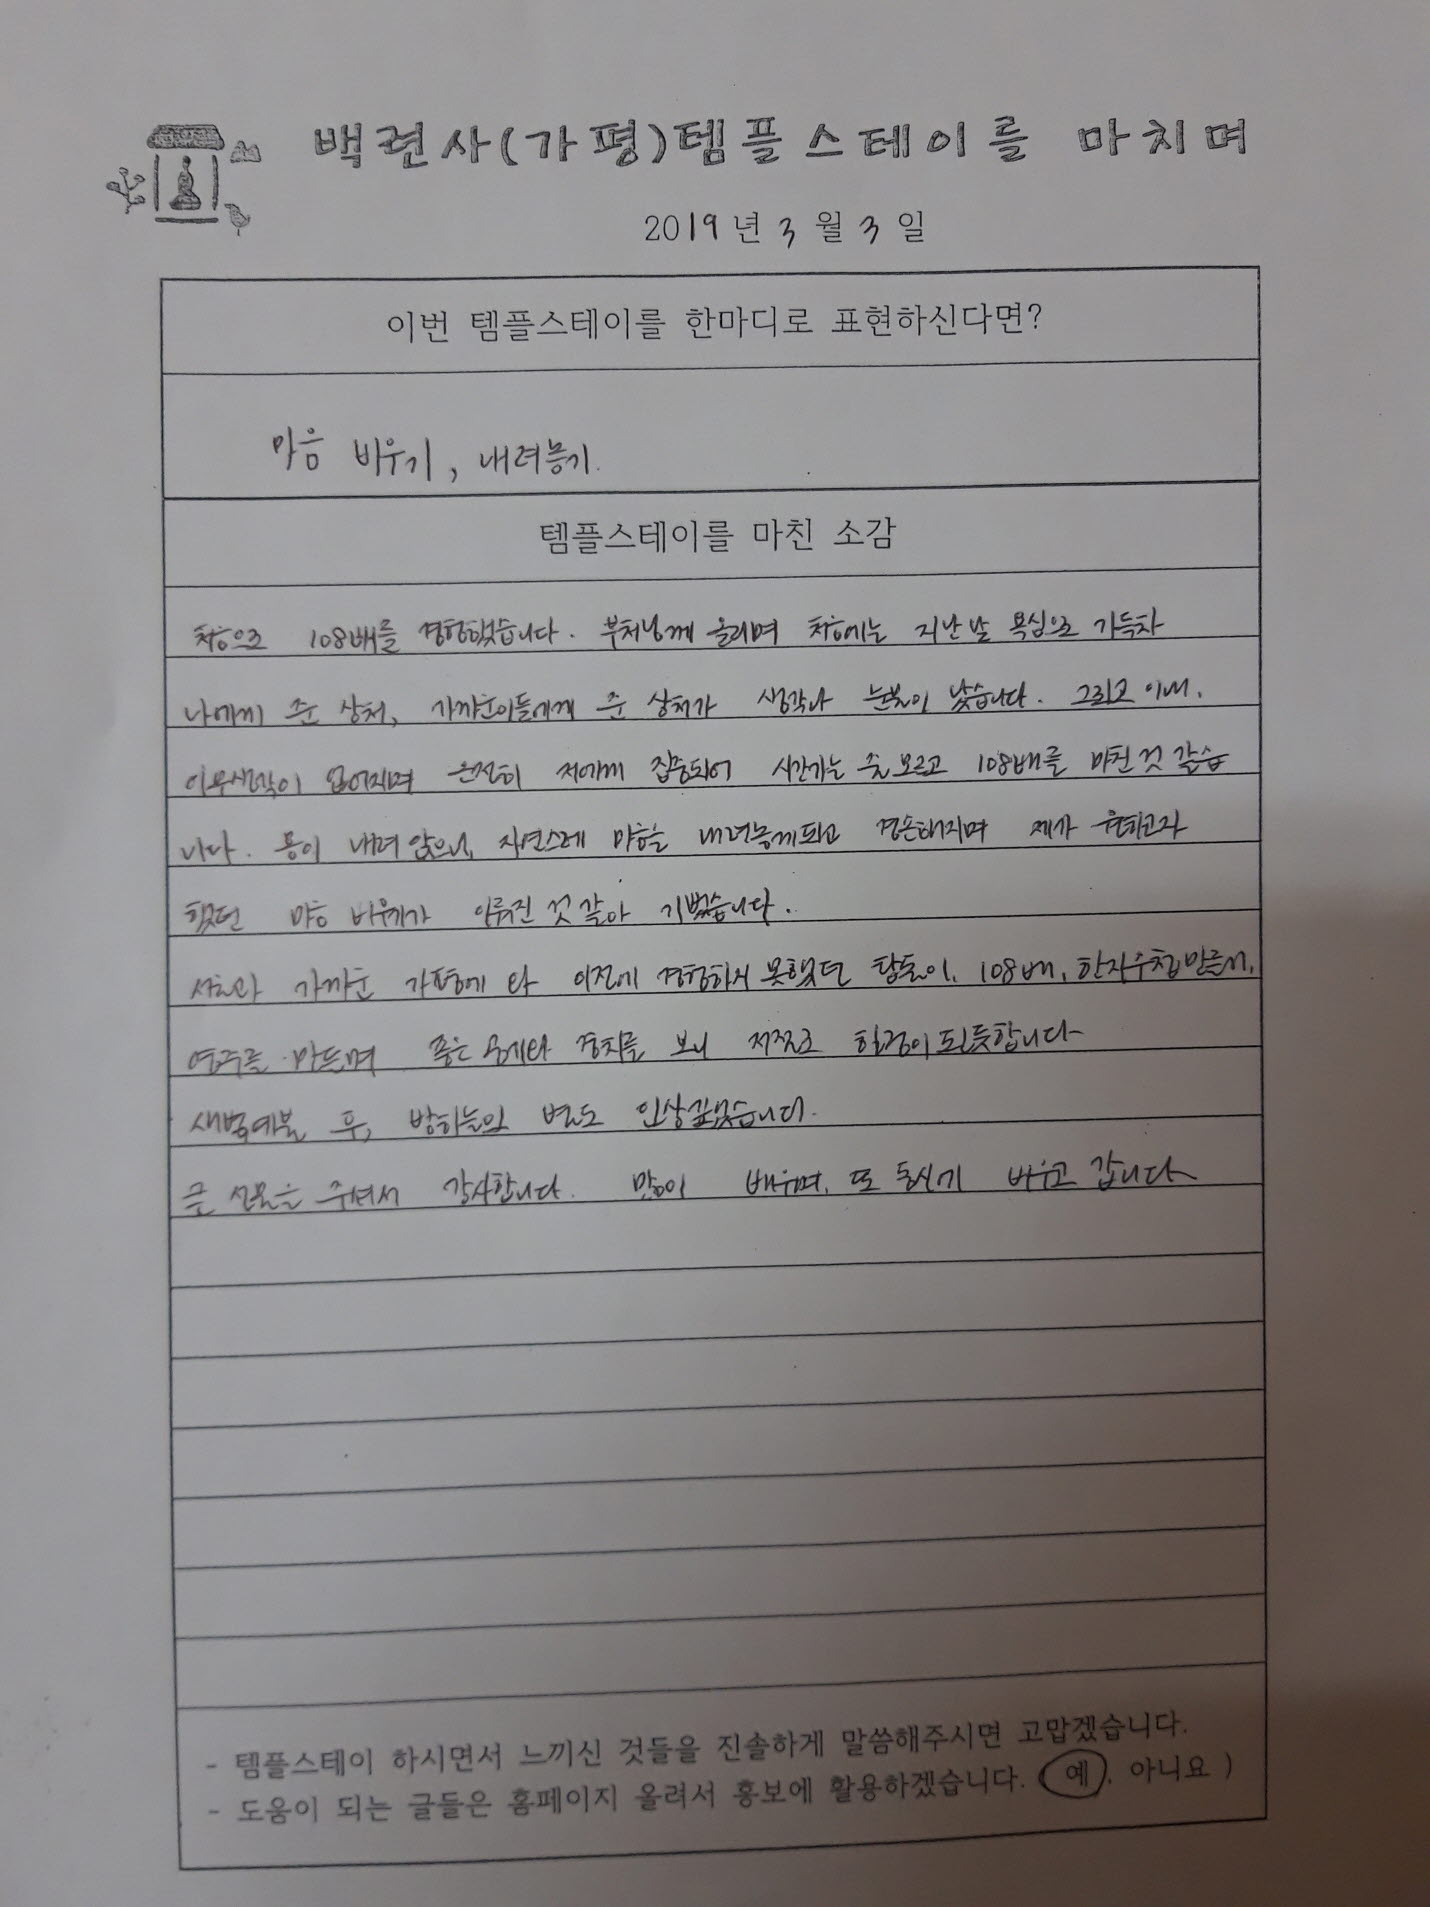 백련사(가평)템플스테이를 마치며
2019년 3월 3일
이번 템플스테이를 한마디로 표현하신다면?
마음 비우기, 내려놓기.
템플스테이를 마친 소감
처음으로 108배를 경험했습니다. 부처님께 올리며 처음에는 지난날 욕심으로 가득차
나에게 준 상처, 가까운이들에게 준 상처가 생각나 눈물이 났습니다. 그리고 이내,
아무생각이 없어지며 온전히 저에게 집중되어 시간가는 줄 모르고 108배를 마친 것 같습
니다. 몸이 내려 앉으니, 자연스레 마음을 내려놓게되고 겸손해지며 제가 원하고자
했던 마음 비우기가 이뤄진 것 같아 기뻤습니다.
서울과 가까운 가평에 와 이전에 경험하지 못했던 탑돌이, 108배, 한지수첩만들기,
염주를 만들며 좋은 공기와 경치를 보니 저절로 힐링이 된듯합니다
새벽예불 후, 밤하늘의 별도 인상깊었습니다.
큰 선물을 주셔서 감사합니다. 많이 배우며, 또 동시에 비우고 갑니다
- 템플스테이 하시면서 느끼신 것들을 진솔하게 말씀해주시면 고맙겠습니다.
- 도움이 되는 글들은 홈페이지 올려서 홍보에 활용하겠습니다. (예, 아니요)